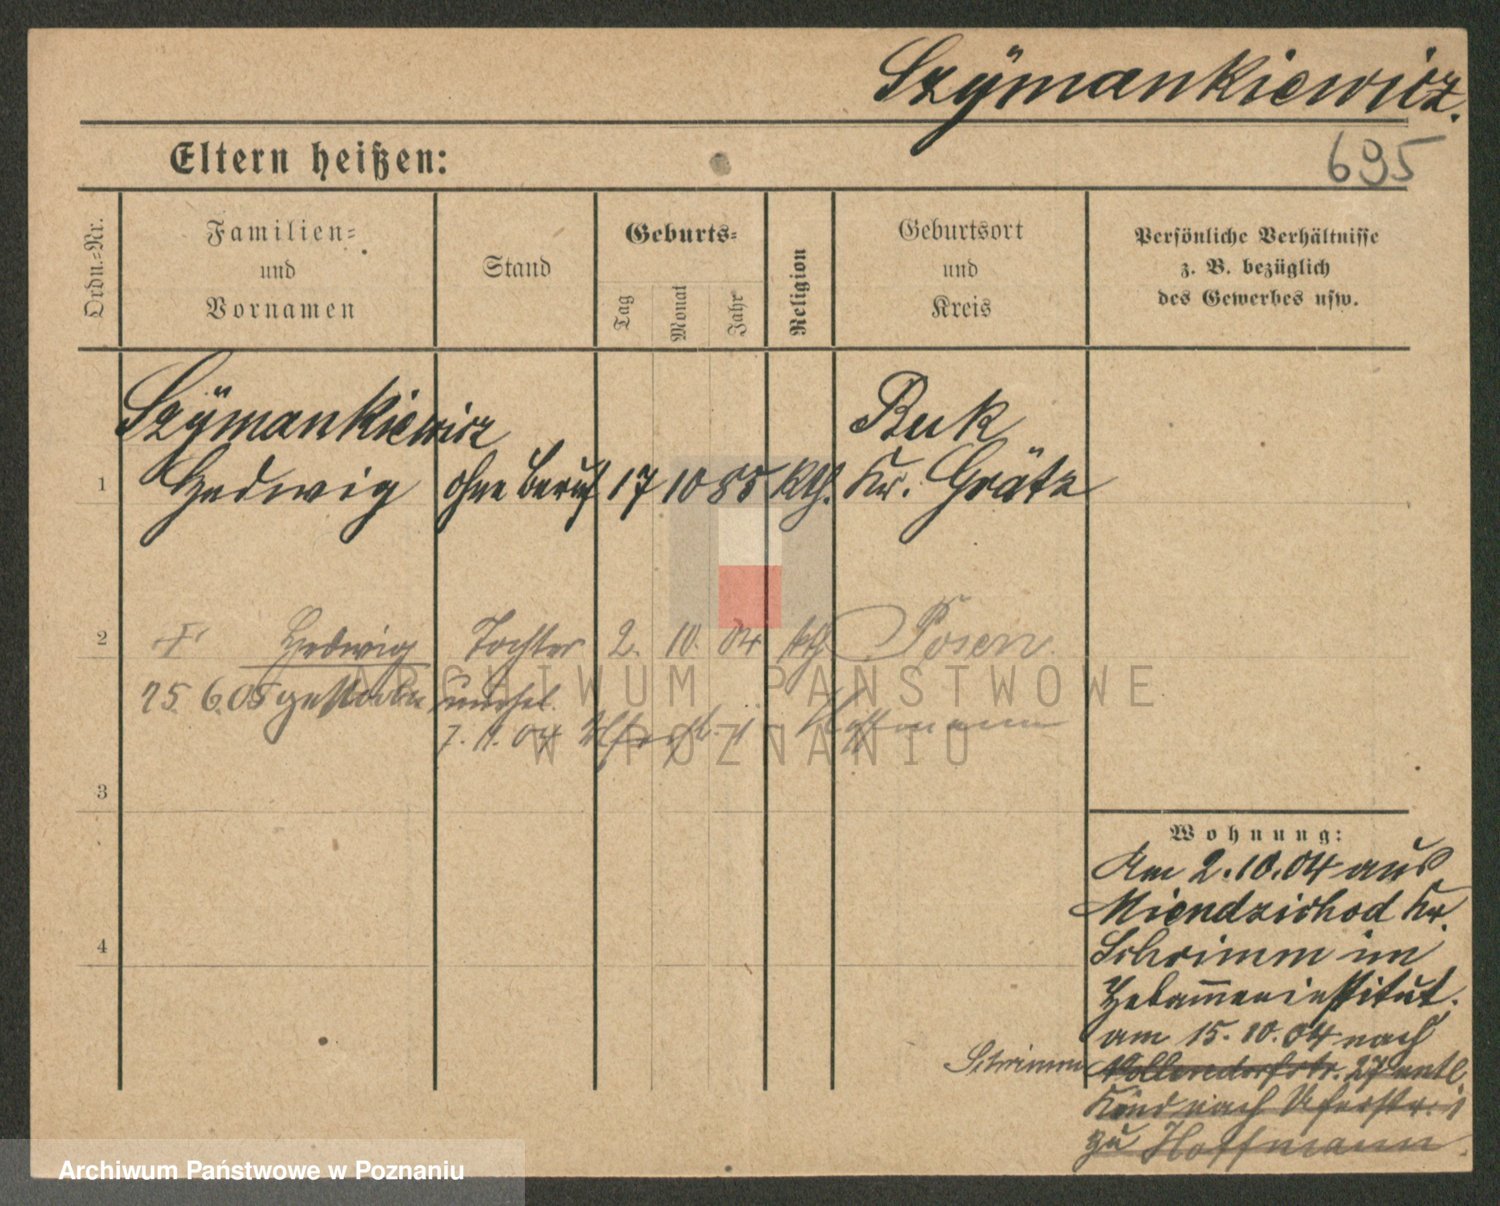 Szymankiewicz.
695
Eltern heißen:
Ordn.-Nr.
Familien-
und
Vornamen
Stand
Geburts-
Tag
Monat
Jahr
Religion
Geburtsort
und
Kreis
Persönliche Verhältnisse
z. B. bezüglich
des Gewerbes usw.
Szymankiewicz Buk
1 Hedwig ohne Beruf 17 10 85 kth. Kr. Grätz
2 Hedwig Tochter 2. 10. 04 kth Posen
6.05 gestorben
04 Hoffmann
3
4
Wohnung:
Am 2.10.04 aus
Miendzichod Kr.
Schrimm im
Hebammeninstitut.
am 15.10.04 nach
Schrimm 27
Kind nach Uferstr. 1
zu Hoffmann.
ARCHIWUM PAŃSTWOWE
W POZNANIU
Archiwum Państwowe w Poznaniu